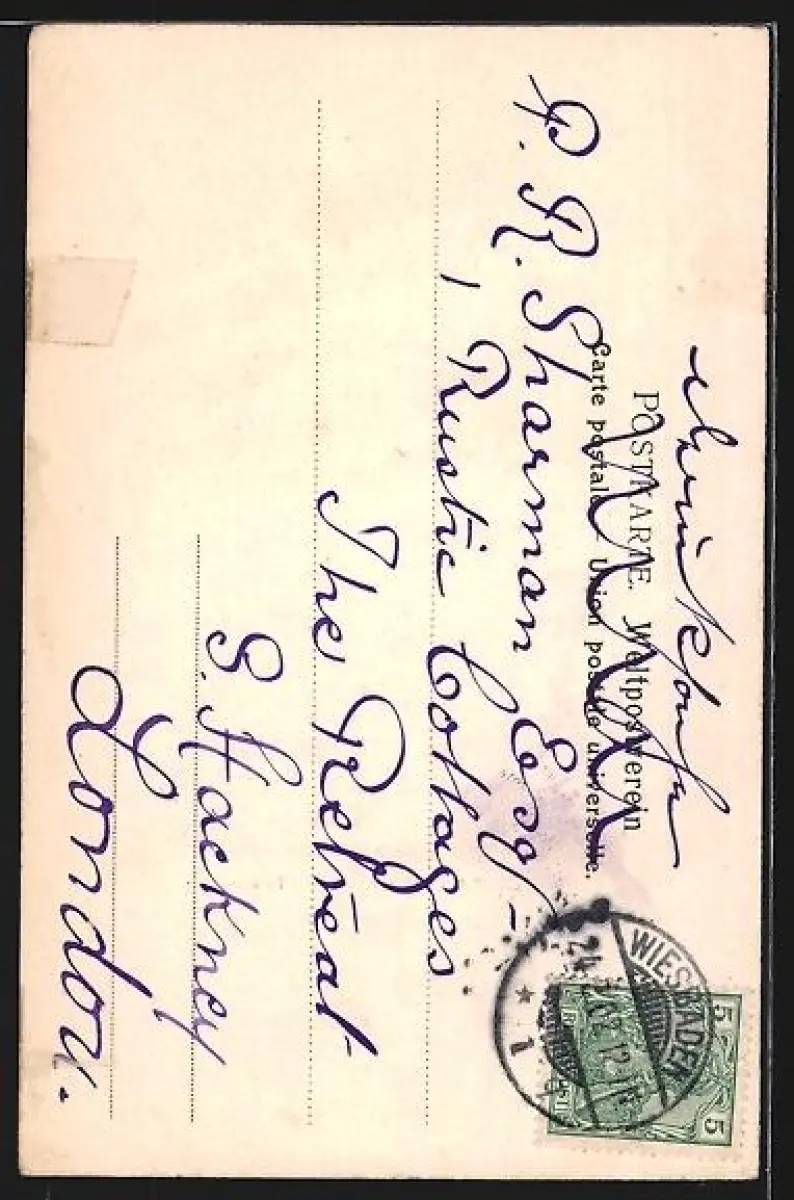 POSTKARTE. Weltpostverein
Carte postale Union postale universelle.
P. R. Sharman Esq-
1, Rustic Cottages
The Retreat
S. Hackney
London.
WIESBADEN
1
5 5